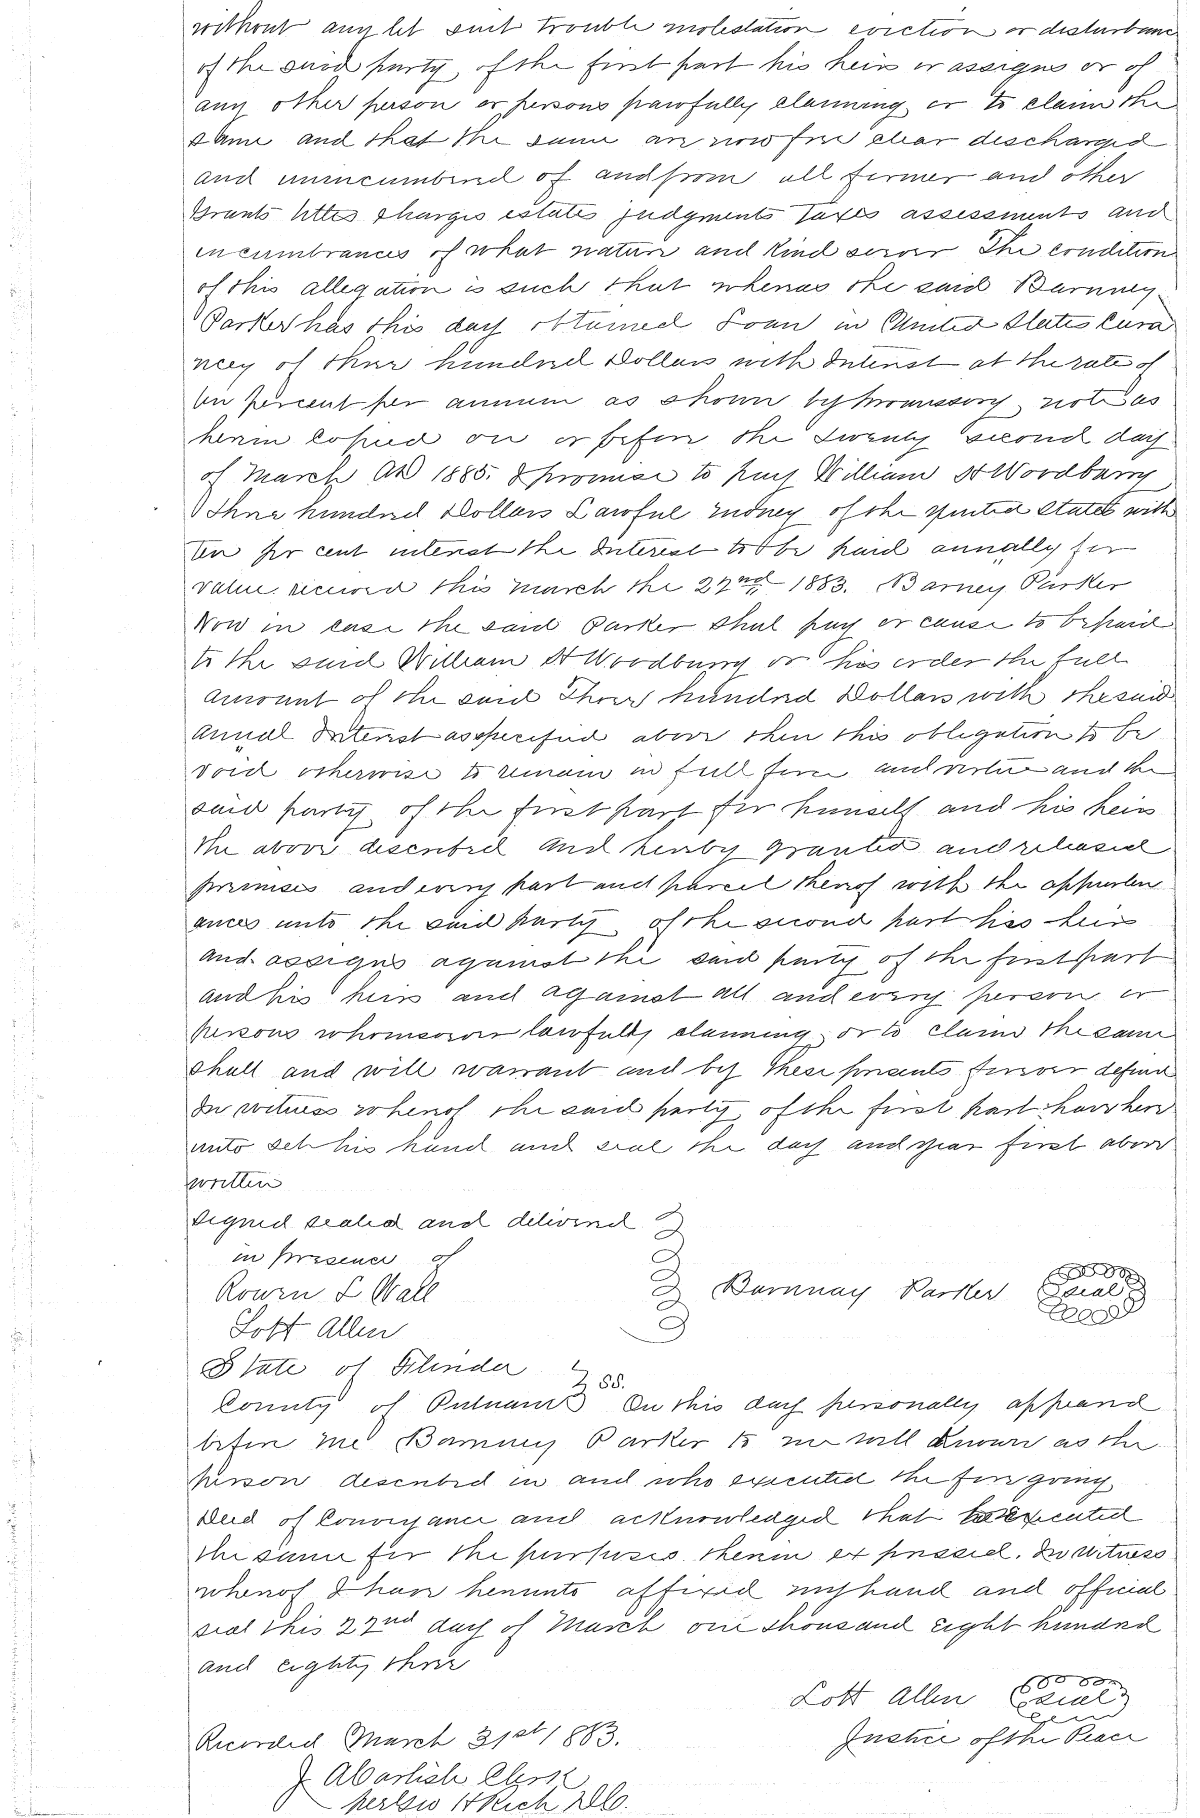 without any let suit trouble molestation eviction or disturbanc
of the said party of the first part his heirs or assigns or of
any other person or persons pawfully claiming or to claim the
same and that the same are now free clear discharged
and unincumbered of and from all former and other
Grants titles charges estates judgments Taxes assessments and
incumbrances of what nature and kind soever The condition
of this allegation is such that whereas the said Barnney
Parker has this day obtained Loan in United States Cura
ncey of three hundred Dollars with Interest at the rate of
ten percent per annum as shown by promissory note as
herein copied on or before the twenty second day
of March AD 1885. I promise to pay William H Woodburry
Three hundred Dollars Lawful money of the united States with
Ten pr cent interest the Interest to be paid annually for
value received this march the 22nd 1883. Barney Parker
Now in case the said Parker shal pay or cause to be paid
to the said William H Woodburry or his order the full
amount of the said Three hundred Dollars with the said
annual Interest as specified above then this obligation to be
void otherwise to remain in full force and virtue and the
said party of the first part for himself and his heirs
the above described and hereby granted and released
premises and every part and parcel thereof with the appurten
ances unto the said party of the second part his heirs
and assigns against the said party of the first part
and his heirs and against all and every person or
persons whomsoever lawfully claiming or to claim the same
shall and will warrant and by these presents forever defend
In witness whereof the said party of the first part have here
unto set his hand and seal the day and year first above
written
signed sealed and delivered
in presence of
Rowen L Wall
Barnnay Parker seal
Lott Allen
State of Florida
County of Putnam ss. On this day personally appeared
before me Barnney Parker to me well known as the
person described in and who executed the fore going
Deed of Conveyance and acknowledged that he executed
the same for the purposes therein ex pressed. In witness
whereof I have hereunto affixed my hand and official
seal this 22nd day of March one thousand eight hundred
and eighty three
Lott Allen seal
Justice of the Peace
Recorded March 31st 1883.
Clerk
per H Rich